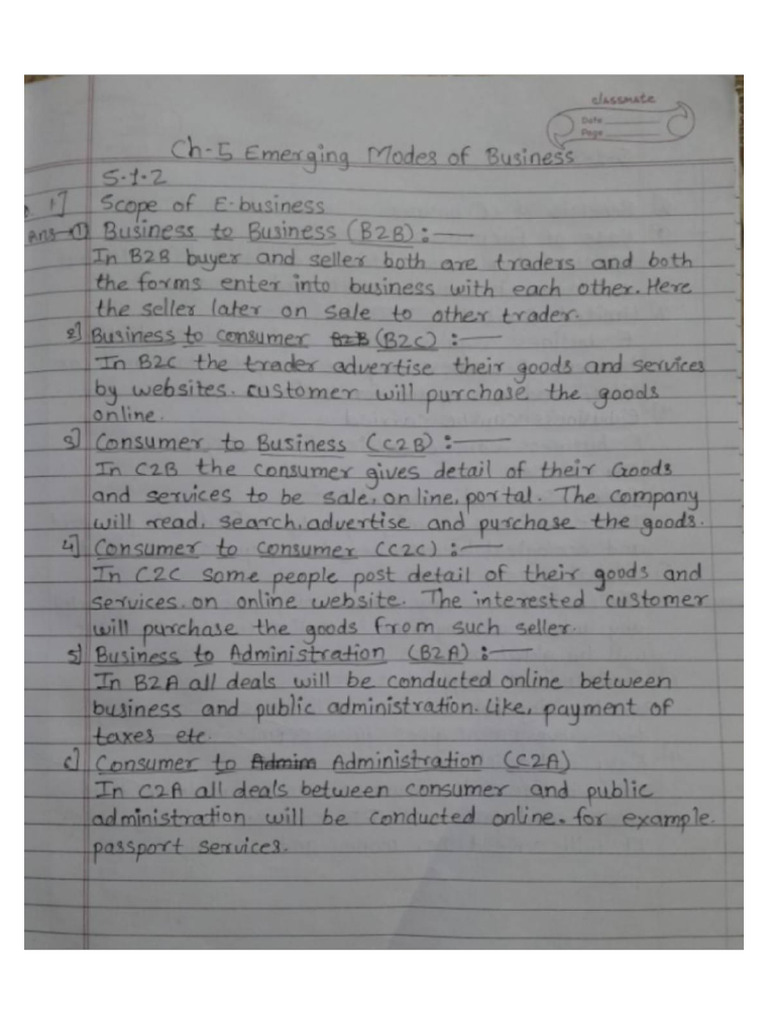 classmate
Date
Page
Ch-5 Emerging Modes of Business
5.1.2
1] Scope of E-business
Ans-① Business to Business (B2B) :—
In B2B buyer and seller both are traders and both
the forms enter into business with each other. Here
the seller later on sale to other trader.
2] Business to consumer B2B (B2C) :—
In B2C the trader advertise their goods and services
by websites. customer will purchase the goods
online.
3] Consumer to Business (C2B) :—
In C2B the consumer gives detail of their Goods
and services to be sale, on line, portal. The company
will read, search, advertise and purchase the goods.
4] Consumer to consumer (C2C) :—
In C2C some people post detail of their goods and
services. on online website. The interested customer
will purchase the goods from such seller.
5] Business to Administration (B2A) :—
In B2A all deals will be conducted online between
business and public administration. Like, payment of
taxes etc.
6] Consumer to Admim Administration (C2A)
In C2A all deals between consumer and public
administration will be conducted online. for example.
passport services.